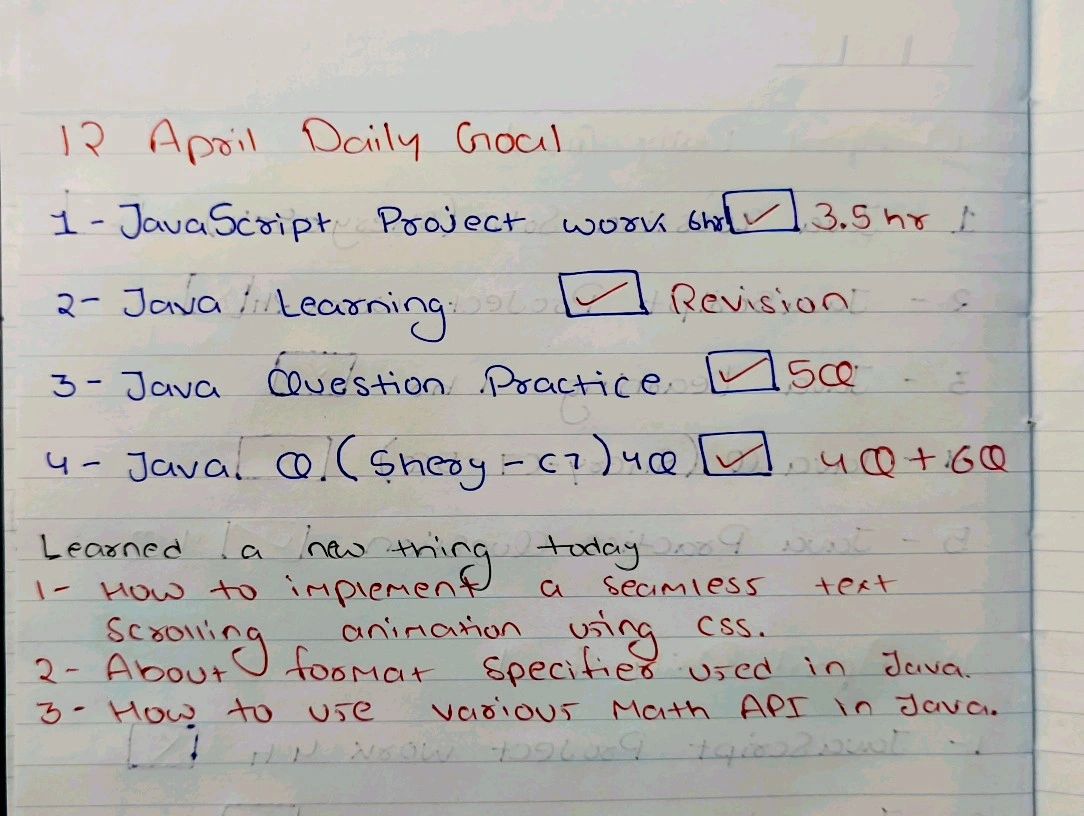 12 April Daily Goal
1 - JavaScript Project work 6hr ✓ 3.5 hr
2 - Java Learning ✓ Revision
3 - Java Question Practice ✓ 5Q
4 - Java Q (Shery - C7) 4Q ✓ 4Q + 6Q
Learned a new thing today
1- How to implement a seamless text
scrolling animation using CSS.
2 - About format specifier used in Java.
3 - How to use various Math API in Java.